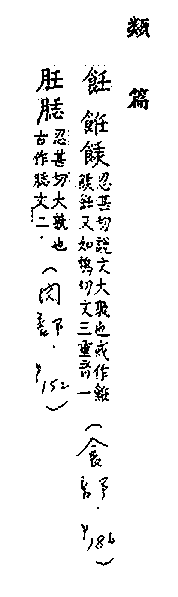 類篇
飪 䭃 餁 忍甚切說文大孰也或作䭃
餁飪又如鴆切文三重音一
(食部. P186)
肚 腍 忍甚切大孰也
古作腍文二.
(肉部. P152)